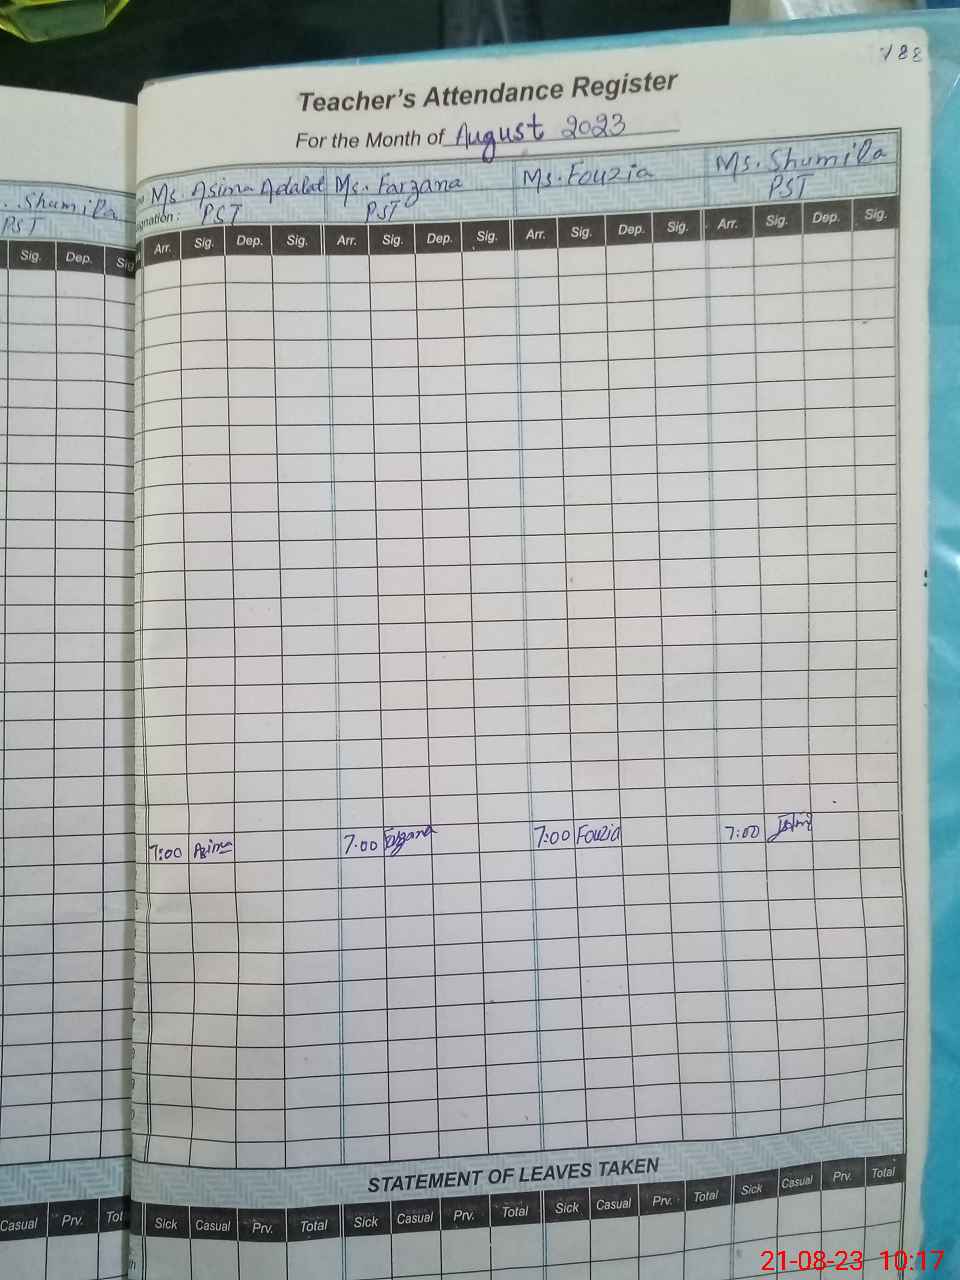 188
Teacher's Attendance Register
For the Month of August 2023
Ms. Asima Adalat Ms. Farzana Ms. Fouzia Ms. Shumila
PST PST PST
Arr. Sig. Dep. Sig. Arr. Sig. Dep. Sig. Arr. Sig. Dep. Sig. Arr. Sig. Dep. Sig.
. Shumila
PST
Sig. Dep. Sig
7:00 Asima 7.00 Farzana 7:00 Fouzia 7:00
STATEMENT OF LEAVES TAKEN
Sick Casual Prv. Total Sick Casual Prv. Total Sick Casual Prv. Total Sick Casual Prv. Total
Casual Prv. Tot
21-08-23 10:17